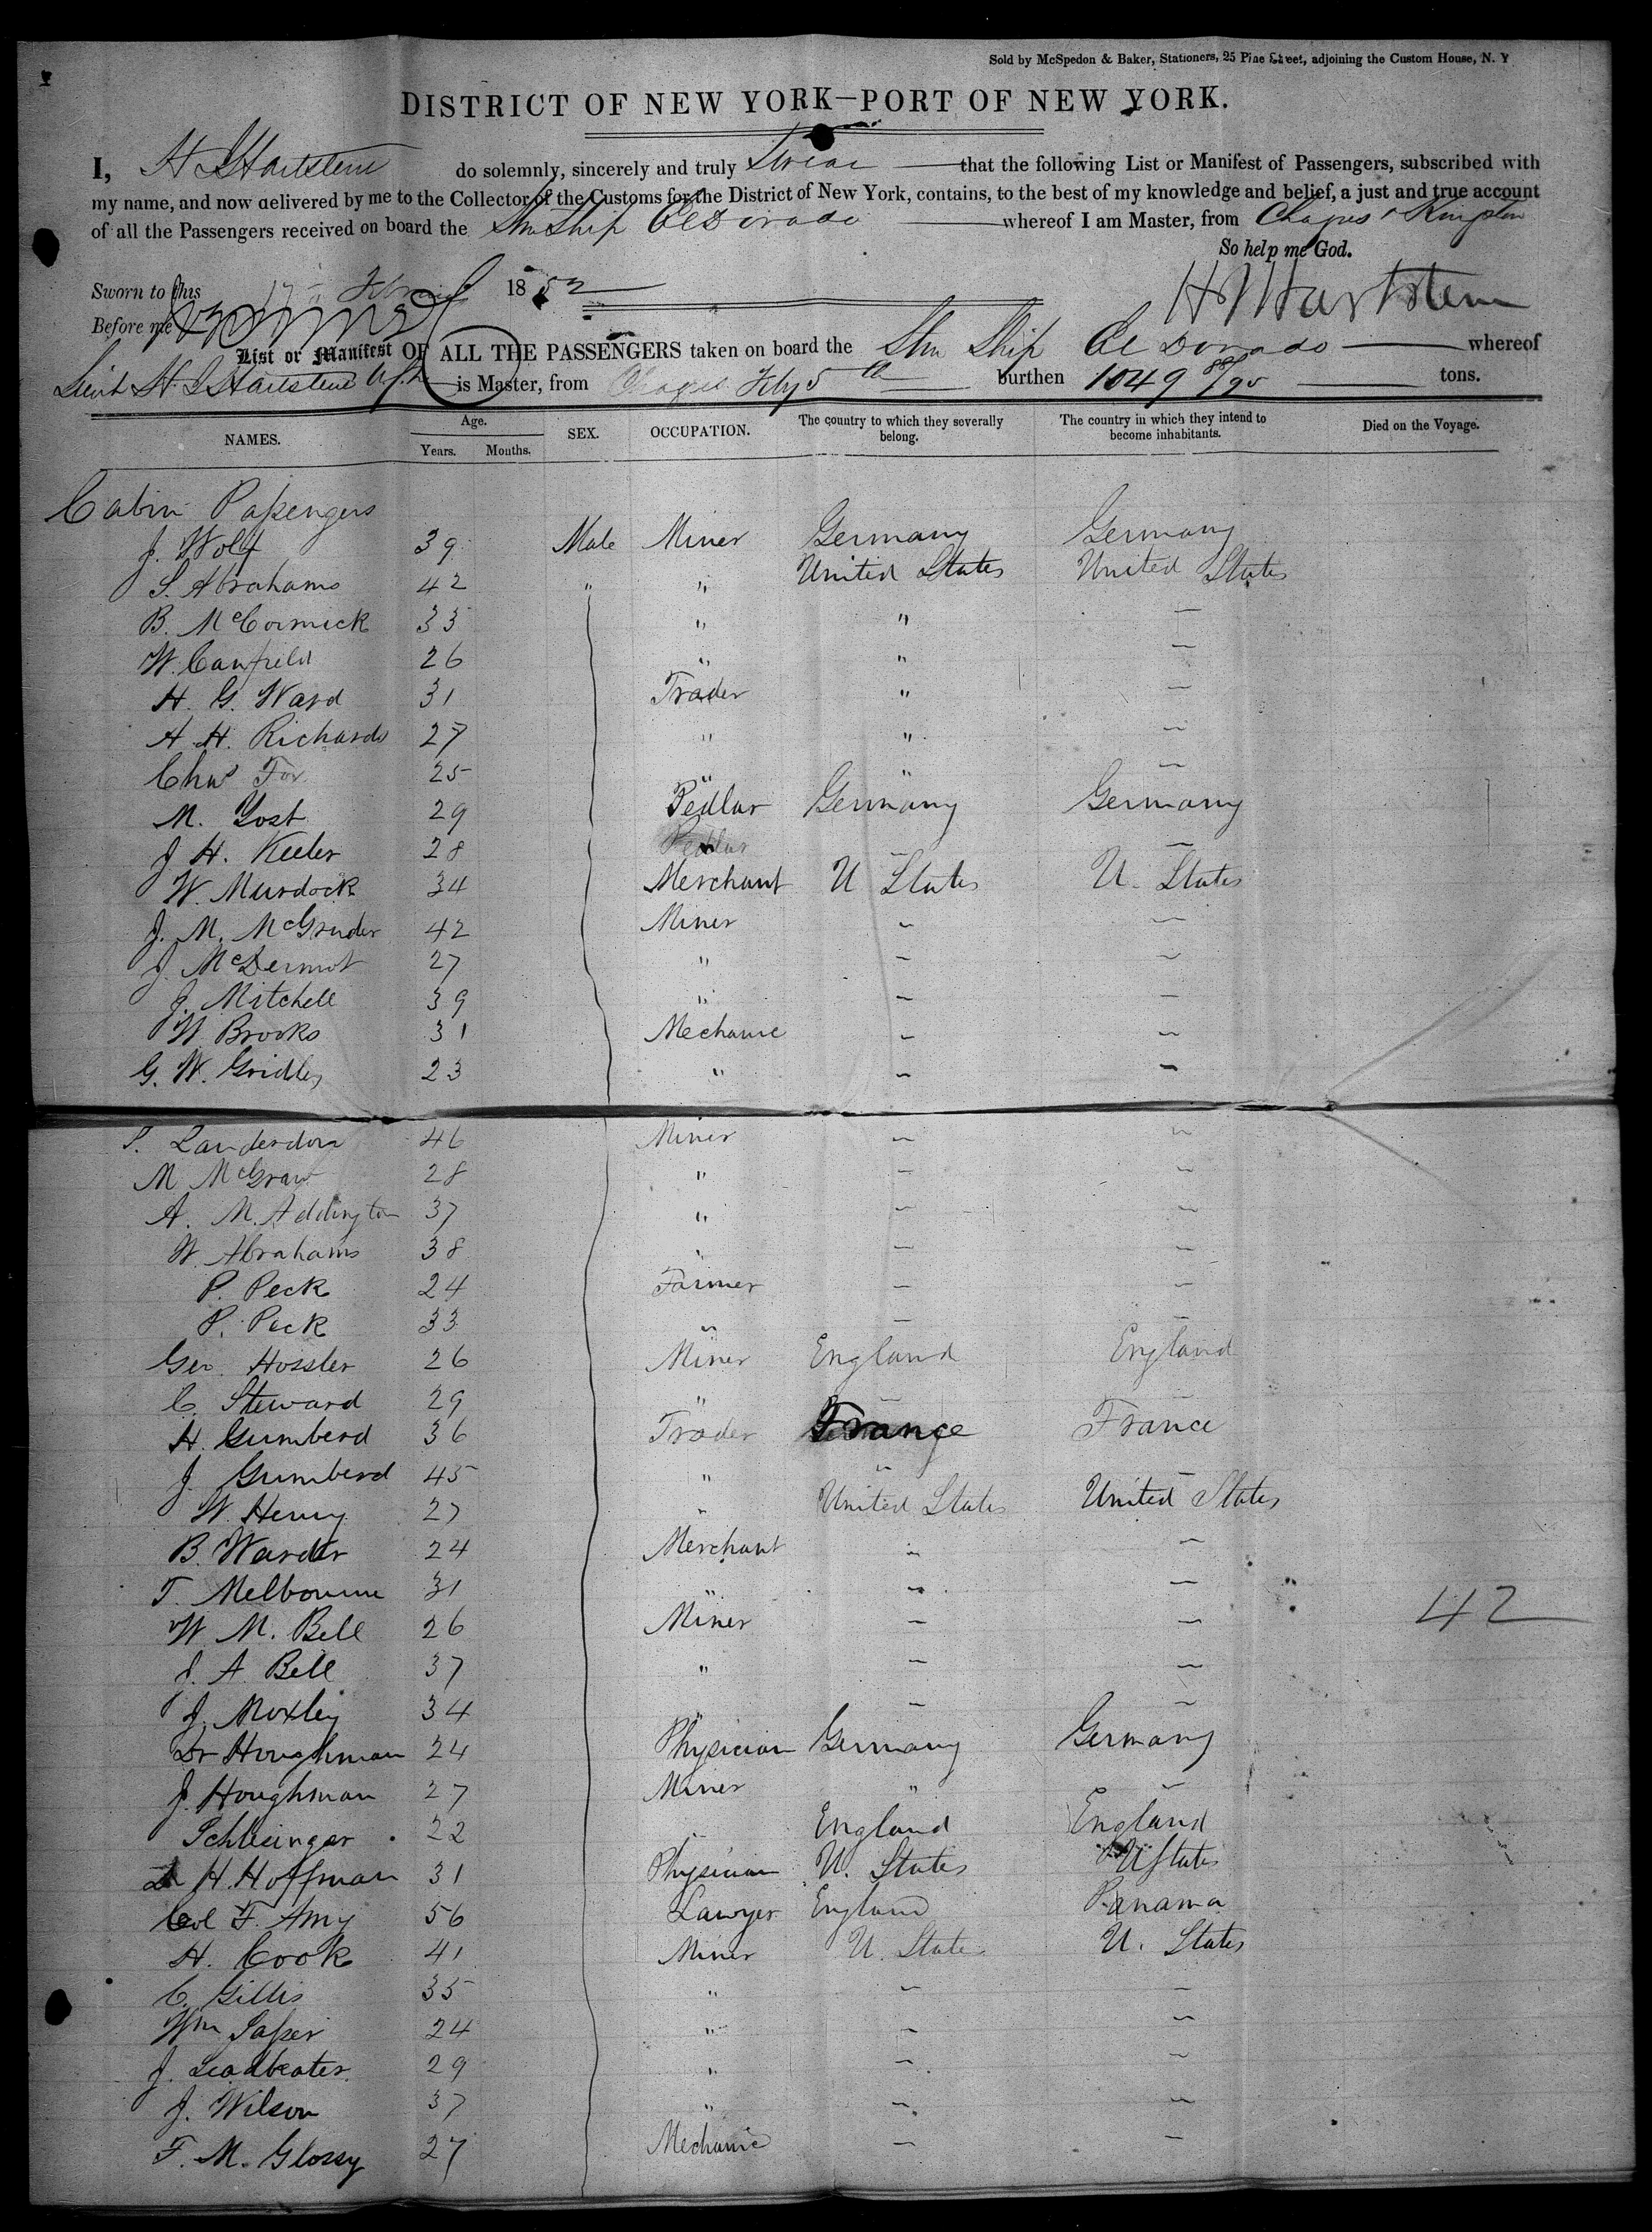 Sold by McSpedon & Baker, Stationers, 25 Pine Street, adjoining the Custom House, N. Y
DISTRICT OF NEW YORK—PORT OF NEW YORK.
I, H J Hartstene do solemnly, sincerely and truly Swear that the following List or Manifest of Passengers, subscribed with
my name, and now delivered by me to the Collector of the Customs for the District of New York, contains, to the best of my knowledge and belief, a just and true account
of all the Passengers received on board the Stm Ship El Dorado whereof I am Master, from Chagres & Kingston
So help me God.
Sworn to this 17 1852
H J Hartstene
Before me
List or Manifest OF ALL THE PASSENGERS taken on board the Stm Ship El Dorado whereof
Lieut H. J Hartstene is Master, from Chagres Feby 5 burthen 1049 88/95 tons.
NAMES. Age. Years. Months. SEX. OCCUPATION. The country to which they severally belong. The country in which they intend to become inhabitants. Died on the Voyage.
Cabin Passengers
J. Wolf 39 Male Miner Germany Germany
S. Abrahams 42 " " United States United States
B. McCormick 33 " " —
W. Canfield 26 " " —
H. G. Ward 31 Trader " —
A. H. Richards 27 " " —
Chas Fox 25 " " —
M. Yost 29 Pedlar Germany Germany
J. H. Keeler 28 Pedlar — —
W. Murdock 34 Merchant U States U. States
J. M. McGruder 42 Miner — —
J. McDermot 27 " — —
J. Mitchell 39 " — —
W Brooks 31 Mechanic — —
G. W. Gridley 23 " — —
46 Miner — —
M McGraw 28 " — —
A. M. Addington 37 " — —
W. Abrahams 38 " — —
P. Peck 24 Farmer — —
P. Peck 33 " — —
Geo Hossler 26 Miner England England
C. Steward 29 " — —
H. Gumberd 36 Trader France France
J. Gumberd 45 " — —
W. Henry 27 " United States United States
B. Warder 24 Merchant — —
T. Melbourne 31 " — —
W M. Bell 26 Miner — —
42
J. A. Bell 37 " — —
J. Moxley 34 " — —
Dr Houghman 24 Physician Germany Germany
J. Houghman 27 Miner " "
Schlesinger 22 " England England
Dr H. Hoffman 31 Physician U. States U States
Col F. Amy 56 Lawyer England Panama
H. Cook 41 Miner U. States U. States
C. Gillis 35 " — —
Wm 24 " — —
J. Leadbeater 29 " — —
J. Wilson 37 " — —
F. M. Glossy 27 Mechanic — —